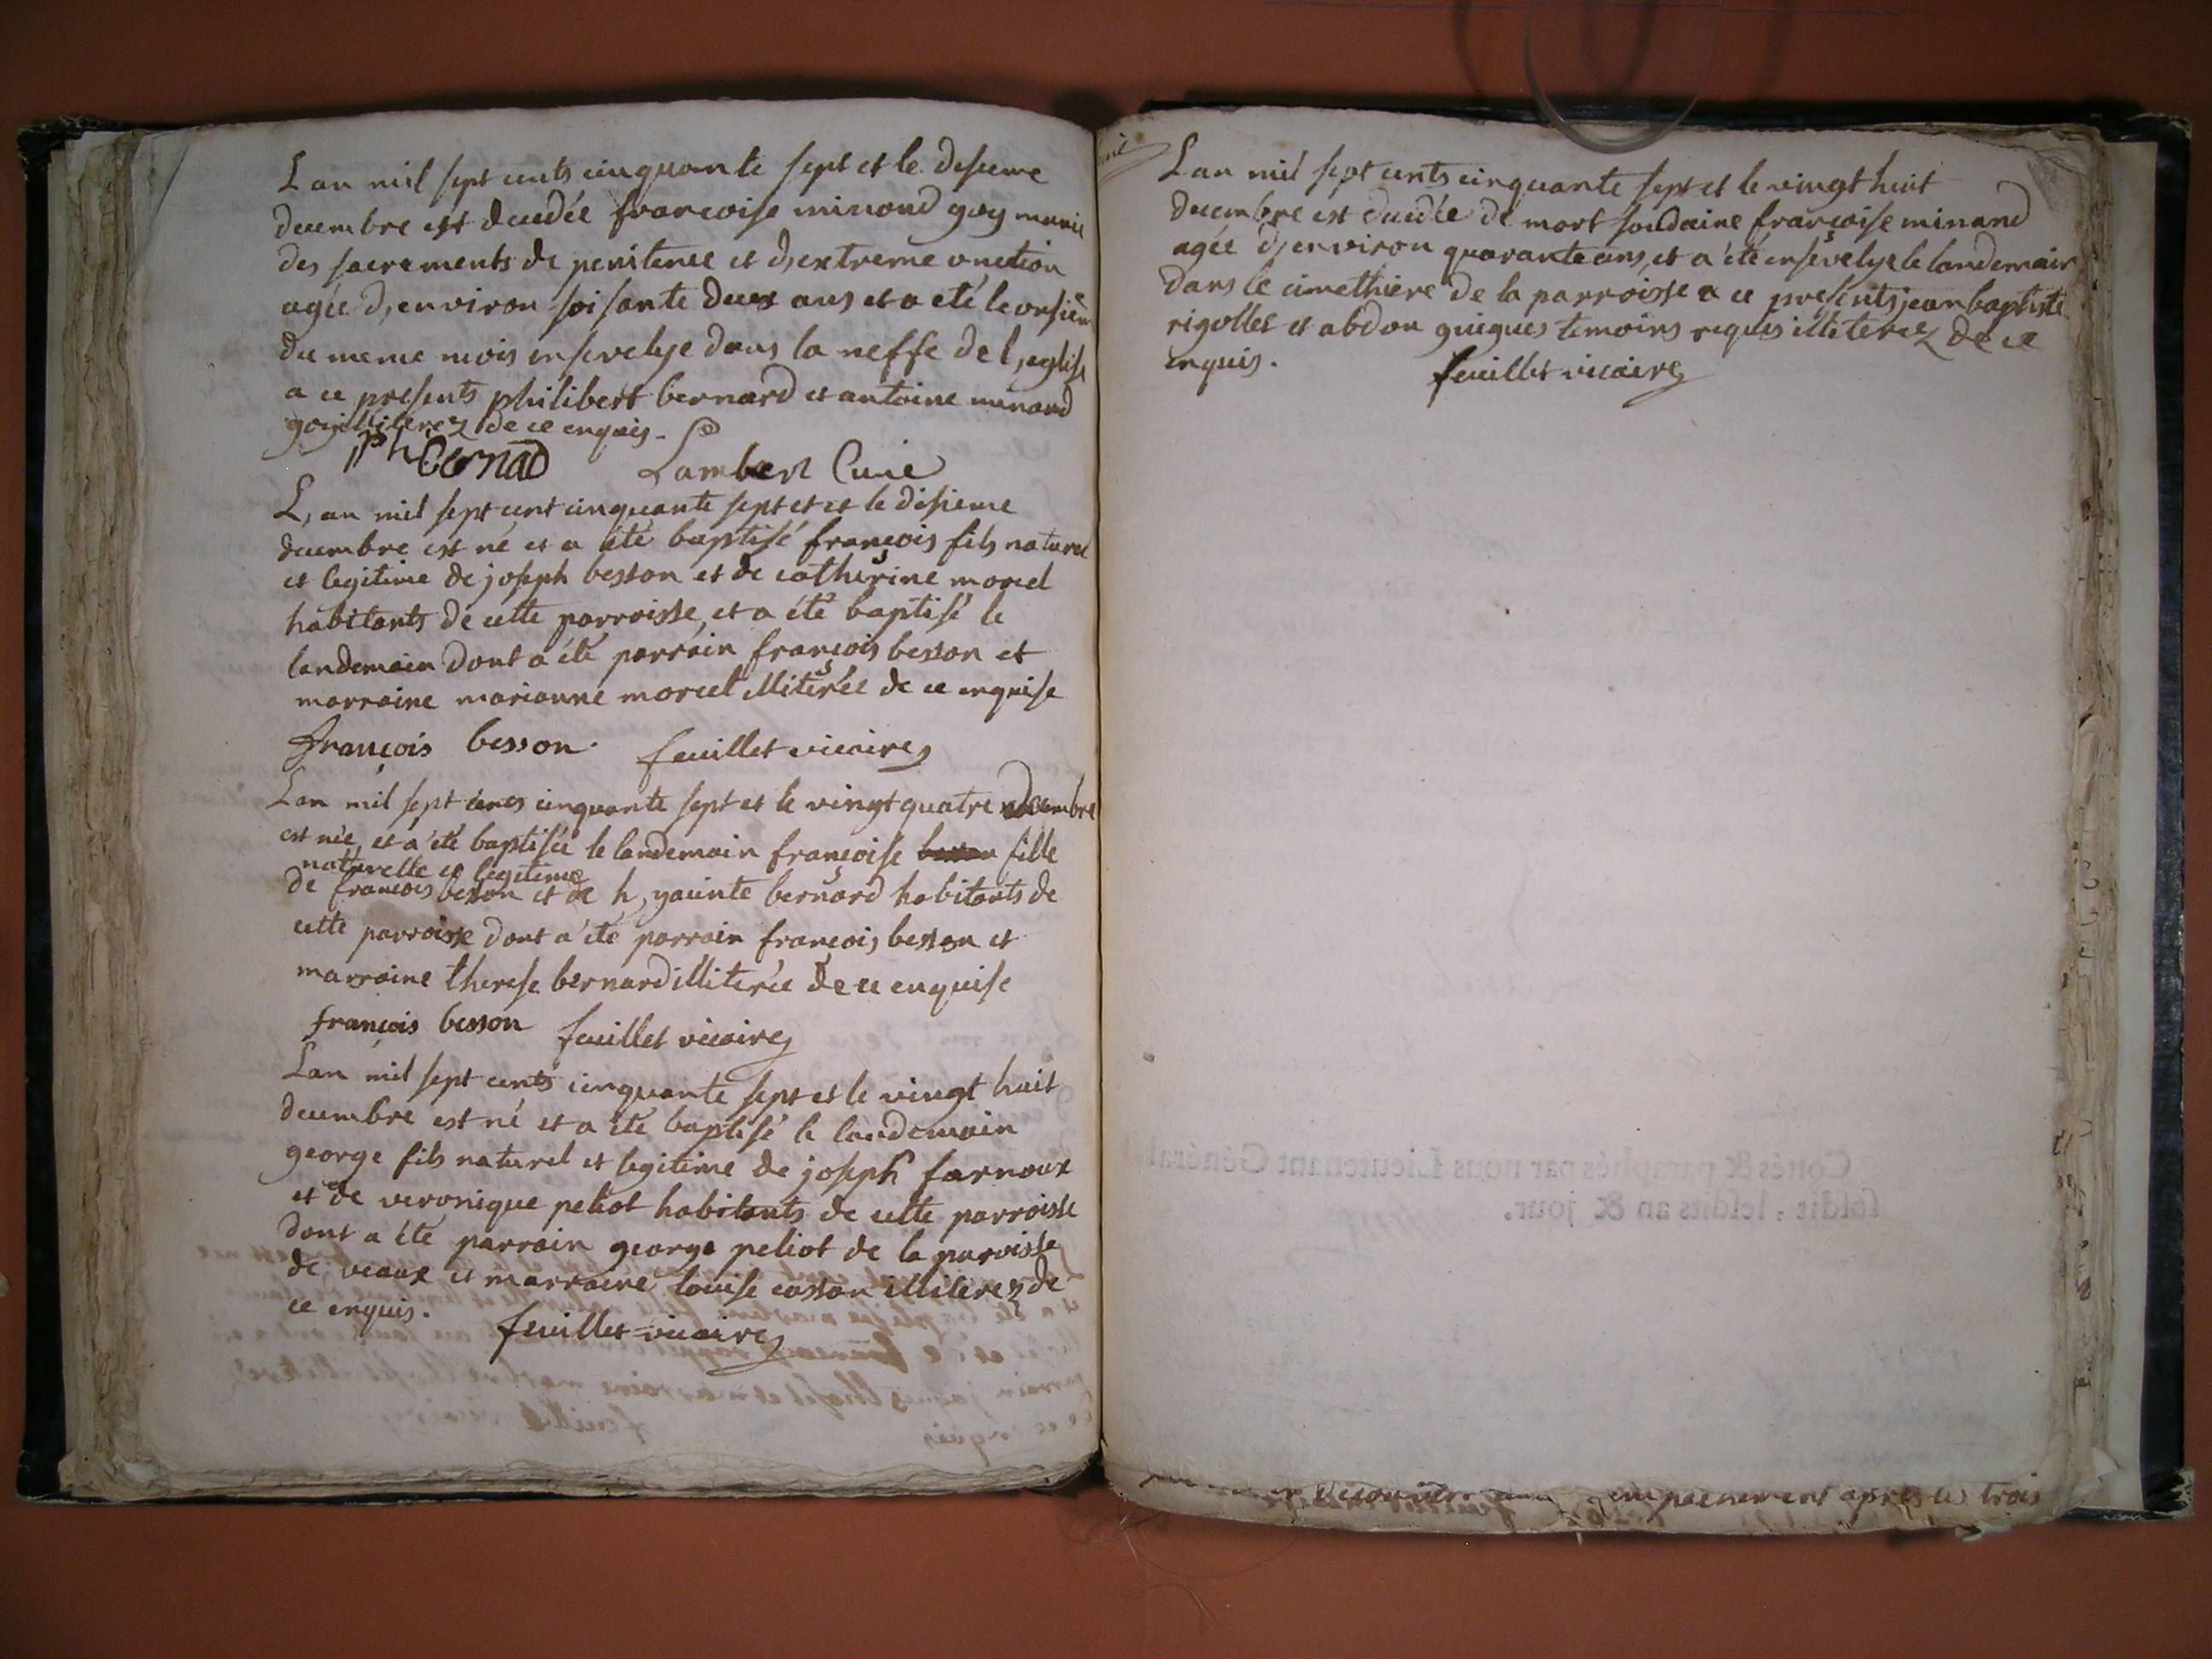 Lan mil sept cents cinquante sept et le desieme
decembre est decedée francoise minond goy munie
des sacrements de penitence et d,extreme onction
agée d,environ soisante deux ans et a eté le onsiem
du meme mois ensevelye dans la neffe de l,eglise
a ce presents philibert bernard et antoine minond
goy illiterez de ce enquis.
Ph Bernad Lambert Curé
L,an mil sept cent cinquante sept et et le disieme
decembre est né et a été baptisé françois fils naturel
et legitime de joseph besson et de catherine morel
habitants de cette parroisse, et a été baptisé le
landemain dont a été parrain françois besson et
marraine marianne morel illiterée de ce enquise
françois besson. feuillet vicaire
Lan mil sept cents cinquante sept et le vingt quatre decembre
est née, et a été baptisée le landemain françoise fille
naturelle et legitime
de francois besson et de h,yacinte bernard habitants de
cette parroisse dont a été parrain françois besson et
marraine therese bernard illiterée de ce enquise
françois besson feuillet vicaire
Lan mil sept cents cinquante sept et le vingt huit
decembre est né et a été baptisé le landemain
george fils naturel et legitime de joseph farnoux
et de veronique peliot habitants de cette parroisse
dont a été parrain george peliot de la paroisse
de veaux et marraine louise casson illiterez de
ce enquis. feuillet vicaire
Lan mil sept cents cinquante sept et le vingt huit
decembre est decedée de mort soudaine françoise minand
agée d,environ quarante ans, et a été ensevelye le landemain
dans le cimethiere de la parroisse a ce presents jean baptiste
rigollet et abdon guigues temoins requis illiterez de ce
enquis. feuillet vicaire
Cottés & paraphés par nous Lieutenant Général
susdit, lesdits an & jour.
apres les trois